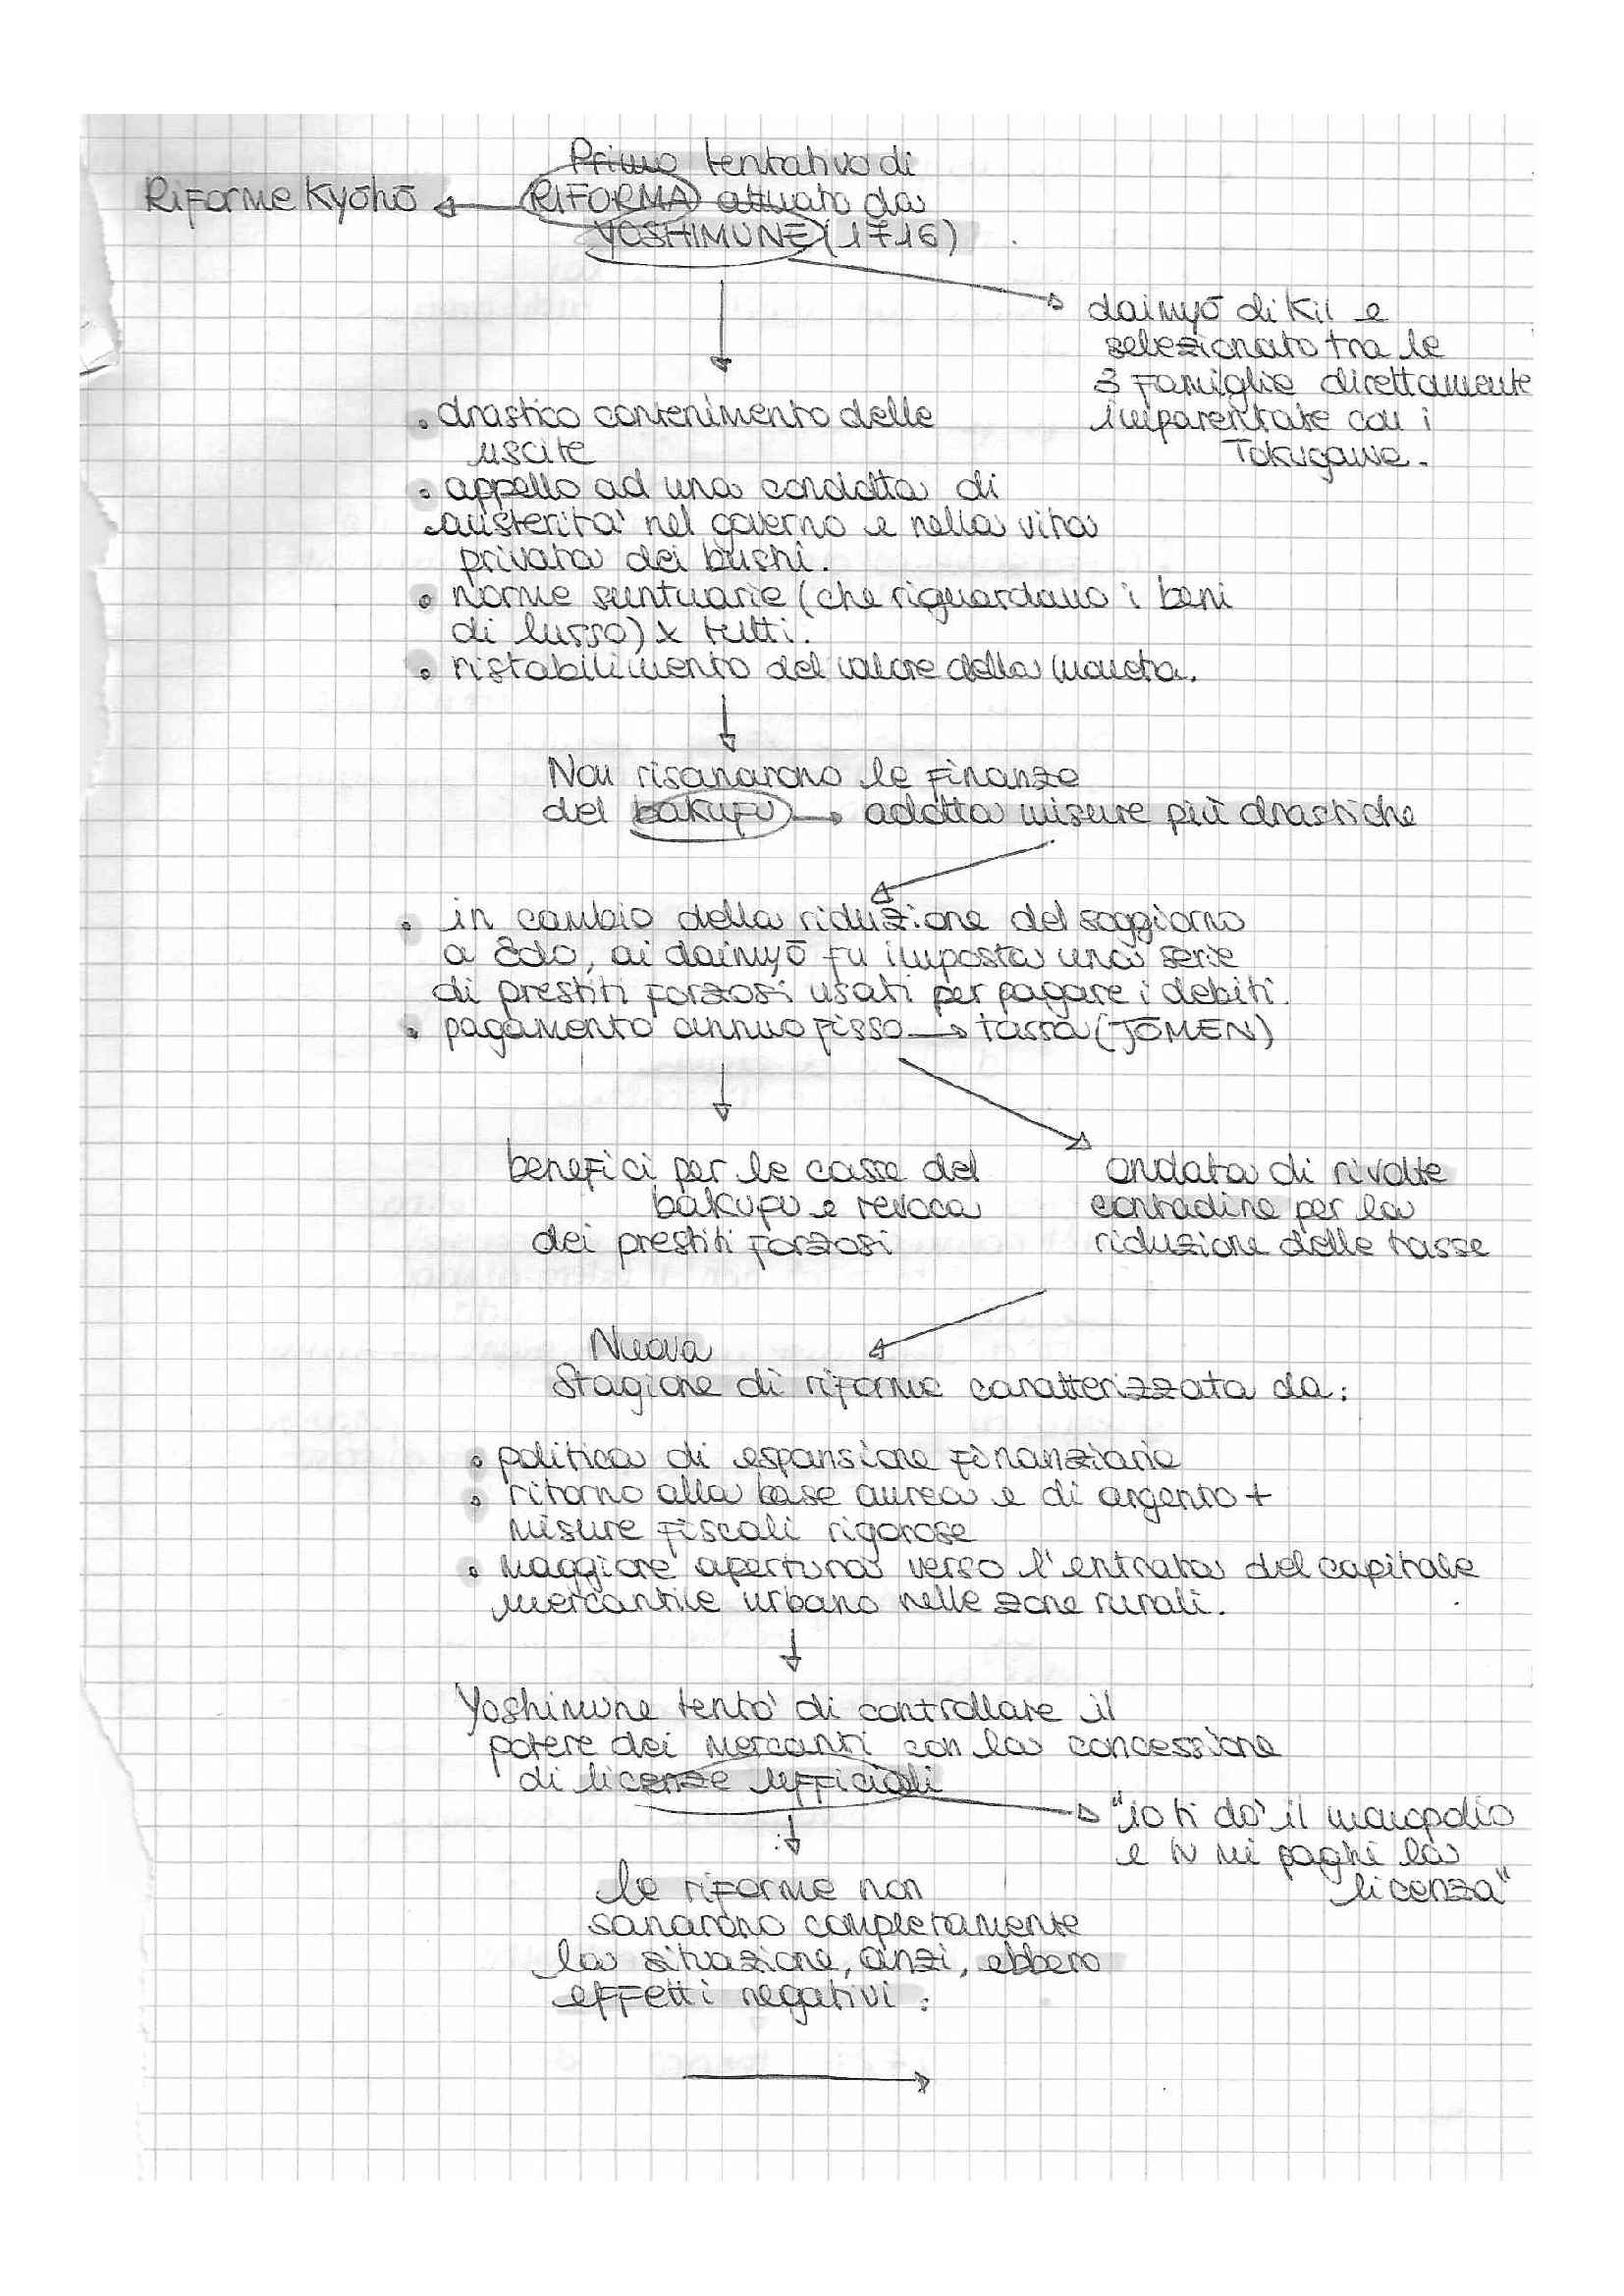 Primo tentativo di
Riforme Kyōhō ← RIFORMA attuato da
YOSHIMUNE (1716)
daimyō di Kii e
selezionato tra le
3 famiglie direttamente
imparentate con i
Tokugawa.
• drastico contenimento delle
uscite
• appello ad una condotta di
austerità nel governo e nella vita
privata dei bushi.
• norme suntuarie (che riguardano i beni
di lusso) x tutti.
• ristabilimento del valore della moneta.
Non risanarono le finanze
del bakufu → adotta misure più drastiche
• in cambio della riduzione del soggiorno
a Edo, ai daimyō fu imposta una serie
di prestiti forzosi usati per pagare i debiti.
• pagamento annuo fisso → tassa (JŌMEN)
benefici per le casse del
bakufu e revoca
dei prestiti forzosi
ondata di rivolte
contadine per la
riduzione delle tasse
Nuova
Stagione di riforme caratterizzata da:
• politica di espansione finanziaria
• ritorno alla base aurea e di argento +
misure fiscali rigorose
• maggiore apertura verso l'entrata del capitale
mercantile urbano nelle zone rurali.
Yoshimune tentò di controllare il
potere dei mercanti con la concessione
di licenze ufficiali
"io ti dò il monopolio
e tu mi paghi la
licenza"
le riforme non
sanarono completamente
la situazione, anzi, ebbero
effetti negativi: